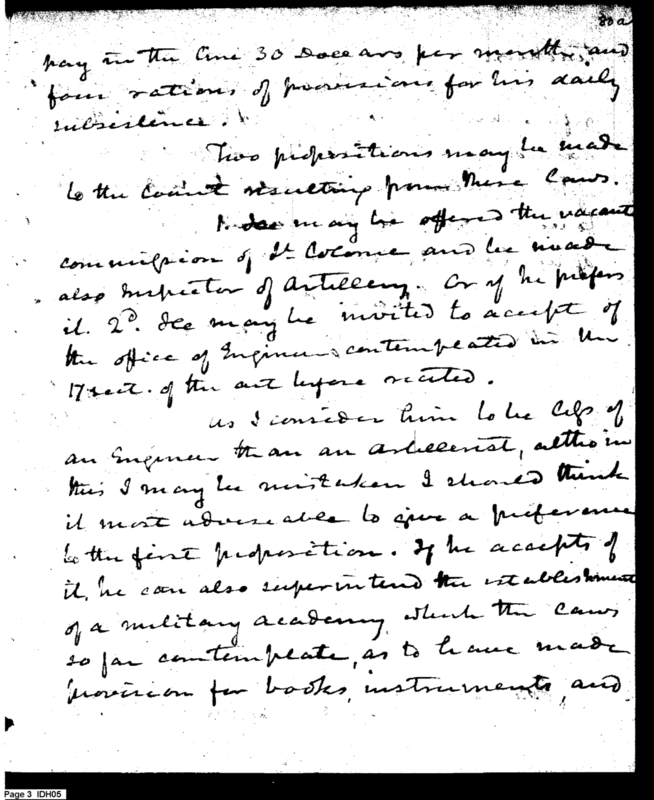 80a
pay in the line 30 Dollars per month, and
four rations of provisions for his daily
subsistence.
Two propositions may be made
to the Count resulting from these Laws.
1. He may be offered the vacant
commission of Lt Colonel and be made
also Inspector of Artillery. Or if he prefers
it. 2d. He may be invited to accept of
the office of Engineer contemplated in the
17 sect. of the act before recited.
As I consider him to be less of
an Engineer than an Artillerist, altho in
this I may be mistaken I should think
it most adviseable to give a preference
to the first proposition. If he accepts of
it, he can also superintend the establishment
of a military academy which the laws
so far contemplate, as to have made
provision for books, instruments, and
Page 3 IDH05